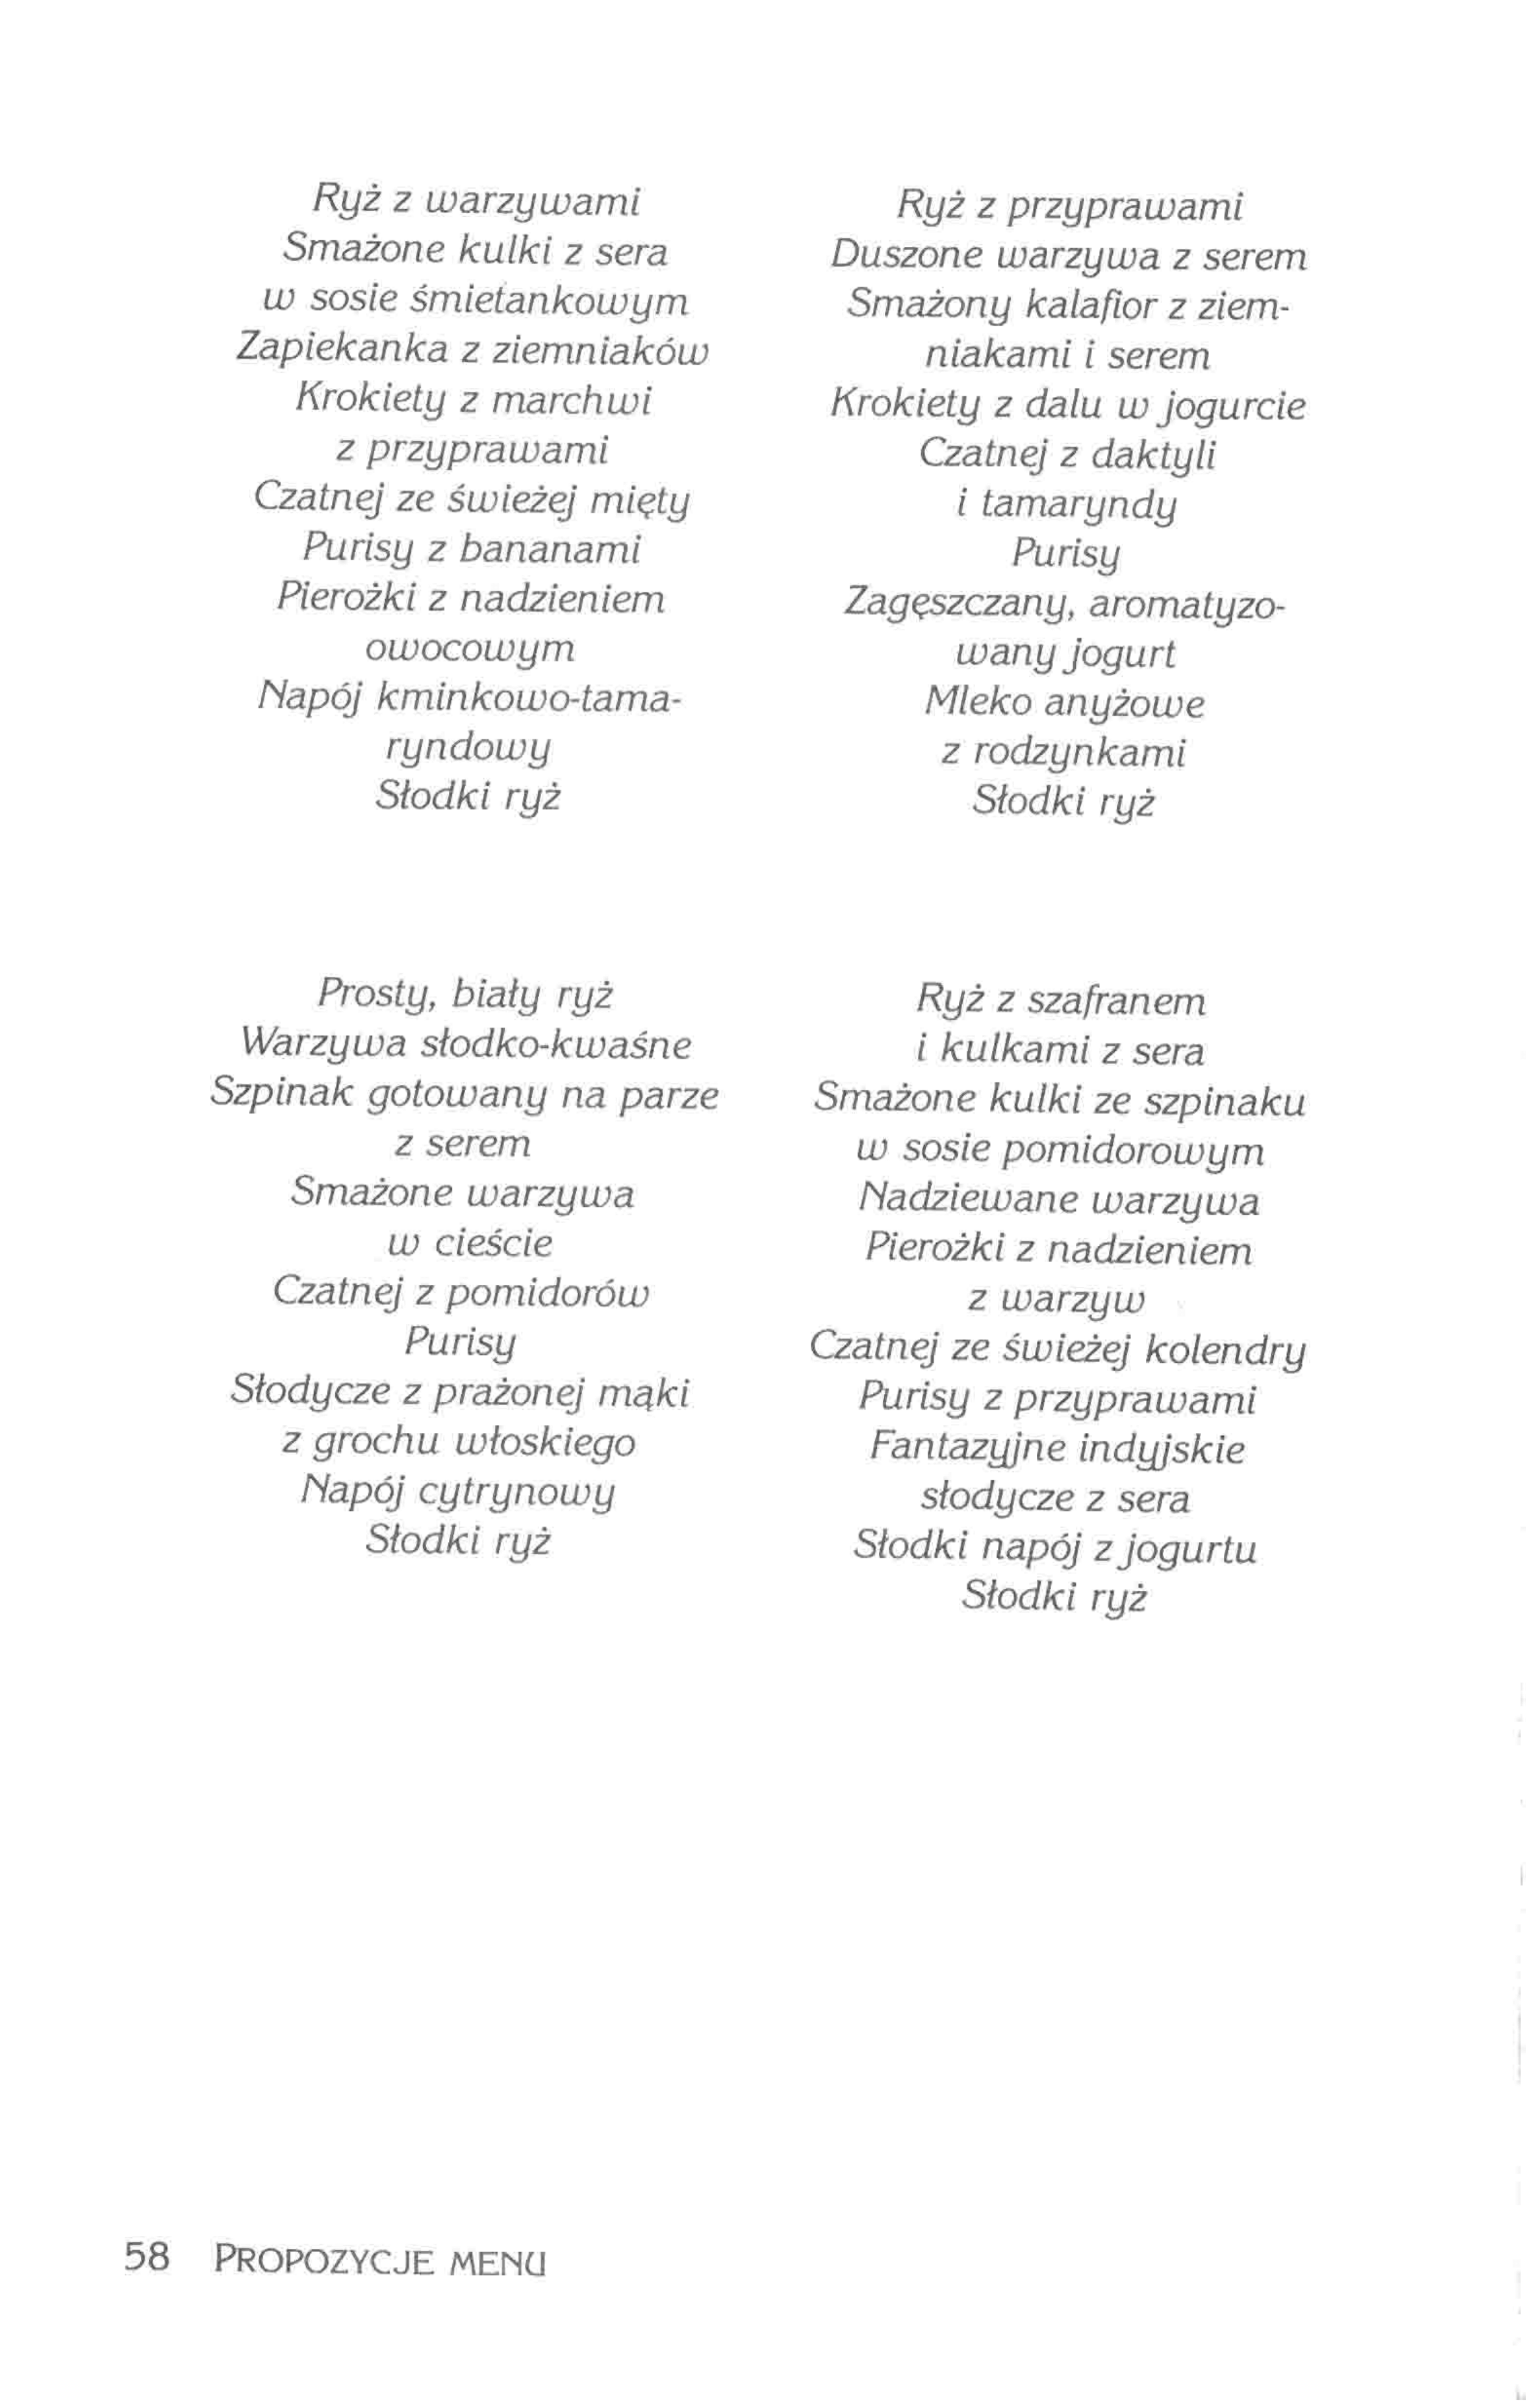 Ryż z warzywami
Smażone kulki z sera
w sosie śmietankowym
Zapiekanka z ziemniaków
Krokiety z marchwi
z przyprawami
Czatnej ze świeżej mięty
Purisy z bananami
Pierożki z nadzieniem
owocowym
Napój kminkowo-tama-
ryndowy
Słodki ryż
Ryż z przyprawami
Duszone warzywa z serem
Smażony kalafior z ziem-
niakami i serem
Krokiety z dalu w jogurcie
Czatnej z daktyli
i tamaryndy
Purisy
Zagęszczany, aromatyzo-
wany jogurt
Mleko anyżowe
z rodzynkami
Słodki ryż
Prosty, biały ryż
Warzywa słodko-kwaśne
Szpinak gotowany na parze
z serem
Smażone warzywa
w cieście
Czatnej z pomidorów
Purisy
Słodycze z prażonej mąki
z grochu włoskiego
Napój cytrynowy
Słodki ryż
Ryż z szafranem
i kulkami z sera
Smażone kulki ze szpinaku
w sosie pomidorowym
Nadziewane warzywa
Pierożki z nadzieniem
z warzyw
Czatnej ze świeżej kolendry
Purisy z przyprawami
Fantazyjne indyjskie
słodycze z sera
Słodki napój z jogurtu
Słodki ryż
58 PROPOZYCJE MENU